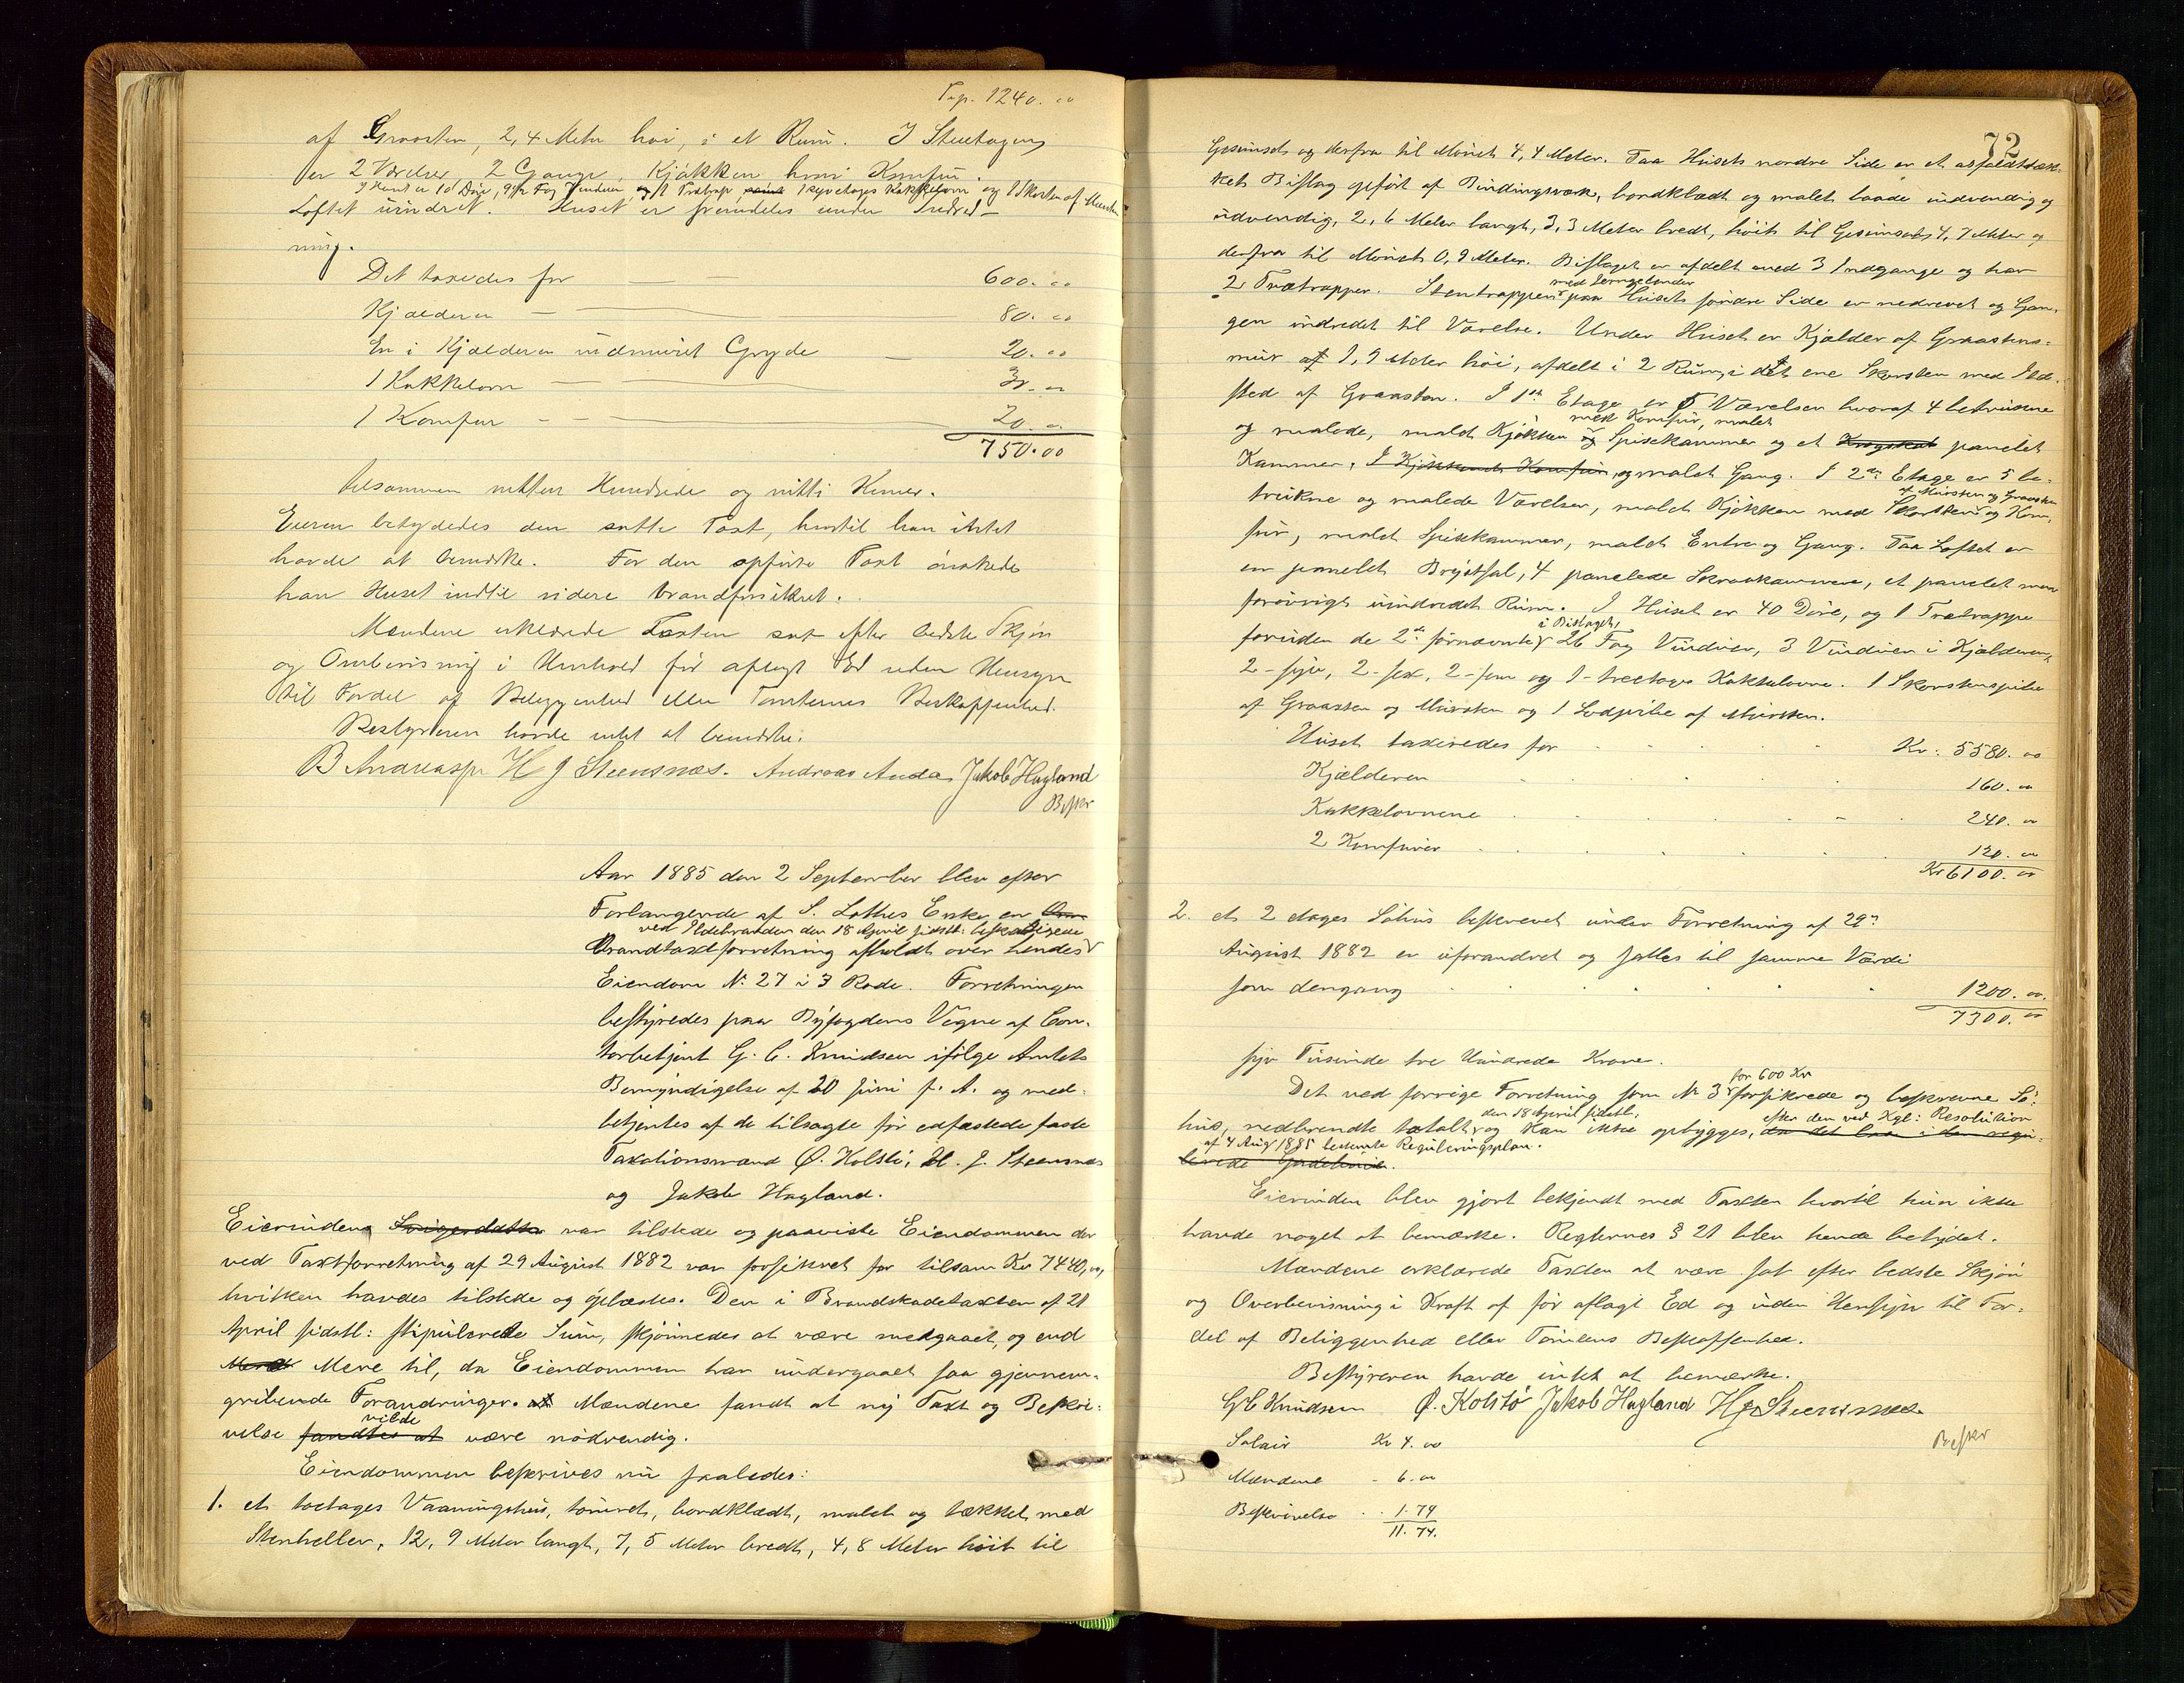 Trp. 1240.00
af Graasten, 2,4 Meter høi, i et Rum. I Stuetagen
er 2 Værelser, 2 Gange, Kjøkken hvori Komfur.
I Huset er 10 Døre, Fag Vinduer og 1 Trætrap, 1 Kakkelovn og 1 Skorsten af Mursten
Loftet uindret. Huset er fremdeles under Indred-
ning.
Det taxeredes for 600.00
Kjælderen 80.00
En i Kjælderen indmuret Gryde 20.00
1 Kakkelovn 30.00
1 Komfur 20.00
750.00
tilsammen nitten Hundrede og nitti Kroner.
Eieren betydedes den satte Taxt, hvortil han intet
havde at bemærke. For den opførte Taxt ønskede
han Huset indtil videre brandforsikret.
Mændene erklærede Taxten sat efter bedste Skjøn
og Overbevisning i Henhold før aflagt Ed uden Hensyn
til Fordel af Beliggenhed eller Tomternes Beskaffenhed.
Bestyreren havde intet at bemærke.
B Andreassen H J Steensnæs. Andreas Anda Jakob Hagland
Beskr
Aar 1885 den 2 September blev efter
Forlangende af S. Lothes Enke en
ved Ildebranden den 18 April sidstl: beskadigede
Brandtaxtforretning afholdt over hendes
Eiendom No 27 i 3 Rode. Forretningen
bestyredes paa Byfogdens Vegne af Con-
torbetjent G. C. Knudsen ifølge Amtets
Bemyndigelse af 20 Juni f. A. og med-
betjentes af de tilsagte før edfæstede faste
Taxtionsmænd Ø. Kolstø, H. J. Steensnæs
og Jakob Hagland.
Eierinden Svigerdatter var tilstede og paaviste Eiendommen der
ved Taxtforretning af 29 August 1882 var forsikret for tilsam Kr 7440,00,
hvilken havdes tilstede og oplæstes. Den i Brandskadetaxten af 21
April sidstl: stipulerede Sum, skjønnedes at være medgaaet, og end
Mere til, da Eiendommen har undergaaet saa gjennem-
gribende Forandringer. at Mændene fandt at ny Taxt og Beskri-
vilde
velse fandtes at være nødvendig.
Eiendommen beskrives nu saaledes:
1. et toetages Vaaningshus, tømret, bordklædt, malet og tækket med
Stenheller, 12,9 Meter langt, 7,5 Meter bredt, 4,8 Meter høit til
72
Gesimset og derfra til Mønet 4,4 Meter. Paa Husets nordre Side er et asfaldtdæk-
ket Bislag opført af Bindingsværk, bordklædt og malet baade indvendig og
udvendig, 2,6 Meter langt, 3,3 Meter bredt, høit til Gesimset 4,7 Meter og
derfra til Mønet 0,9 Meter. Bislaget er afdelt med 3 Indgange og har
med Jerngelender
2 Trætrapper. Stentrappen paa Husets søndre Side er nedrevet og Gan-
gen indredet til Værelse. Under Huset er Kjælder af Graastens-
mur af 1,9 Meter høi, afdelt i 2 Rum, i det ene Skorsten med Ild-
sted af Graasten. I 1ste Etage er 5 Værelser hvoraf 4 betrukne
med Komfur, malet
og malede, malet Kjøkken og Spisekammer og et panelet
Kammer. I Kjøkkenet Komfur, og malet Gang. I 2den Etage er 5 be-
af Mursten og Graasten
trukne og malede Værelser, malet Kjøkken med Skorsten og Kom-
fur, malet Spisekammer, malet Entre og Gang. Paa Loftet er
en panelet Brystsal, 4 panelede Skraakammere, et panelet men
forøvrigt uindredet Rum. I Huset er 40 Døre, og 1 Trætrappe
i Bislaget,
foruden de 2de førnævnte 26 Fag Vinduer, 3 Vinduer i Kjælderen,
2-syv, 2-sex, 2-fem og 1-treetages Kakkelovne. 1 Skorstenspibe
af Graasten og Mursten og 1 Lodpibe af Mursten.
Huset taxeredes for Kr: 5580.00
Kjælderen 160.00
Kakkelovnene 240.00
2 Komfurer 120.00
Kr 6100.00
2. et 2 etages Søhus beskrevet under Forretning af 29de
August 1882 er uforandret og sættes til samme Værdi
som dengang 1200.00.
7300.00
syv Tusinde tre Hundrede Kroner.
for 600 Kr
Det ved forrige Forretning som No 3 forsikrede og beskrevne Sø-
den 18 April sidstl, efter den ved Kgl: Resolution
hus, nedbrændte totalt, og kan ikke opbygges, da det laa i den regu-
af 4 Aug 1885 bestemte Reguleringsplan.
lerede Gadelinie.
Eierinden blev gjort bekjendt med Taxten hvortil hun ikke
havde noget at bemærke. Reglernes § 21 blev hende betydet.
Mændene erklærede Taxten at være sat efter bedste Skjøn
og Overbevisning i Kraft af før aflagt Ed og uden Hensyn til For-
del af Beliggenhed eller Tomtens Beskaffenhed.
Bestyreren havde intet at bemærke.
GC Knudsen Ø. Kolstø Jakob Hagland HJ Steensnæs
Beskr
Salair Kr 4.00
Mændene - 6.00
Beskrivelse 1.74
11.74.